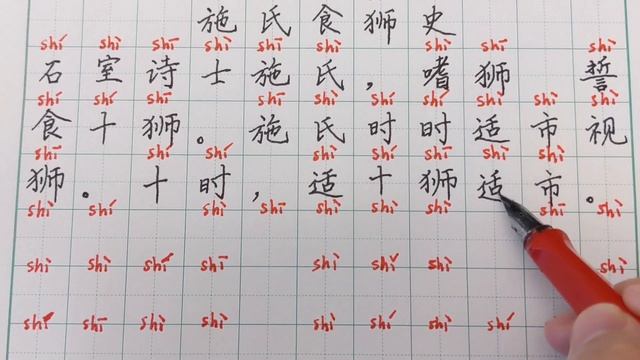 施氏食狮史
shí shì shī shì shī shì shì shī shì
石室诗士施氏，嗜狮 誓
shí shí shī shī shì shí shí shì shì shì
食十狮。施氏时时适市视
shī shí shí shì shí shī shì shì
狮。十时，适十狮适市。
shì shí shì shī shì shì shì shī shì
shì shì shí shī shì shǐ shì shǐ
shì shī shì shì shì shí shì shí